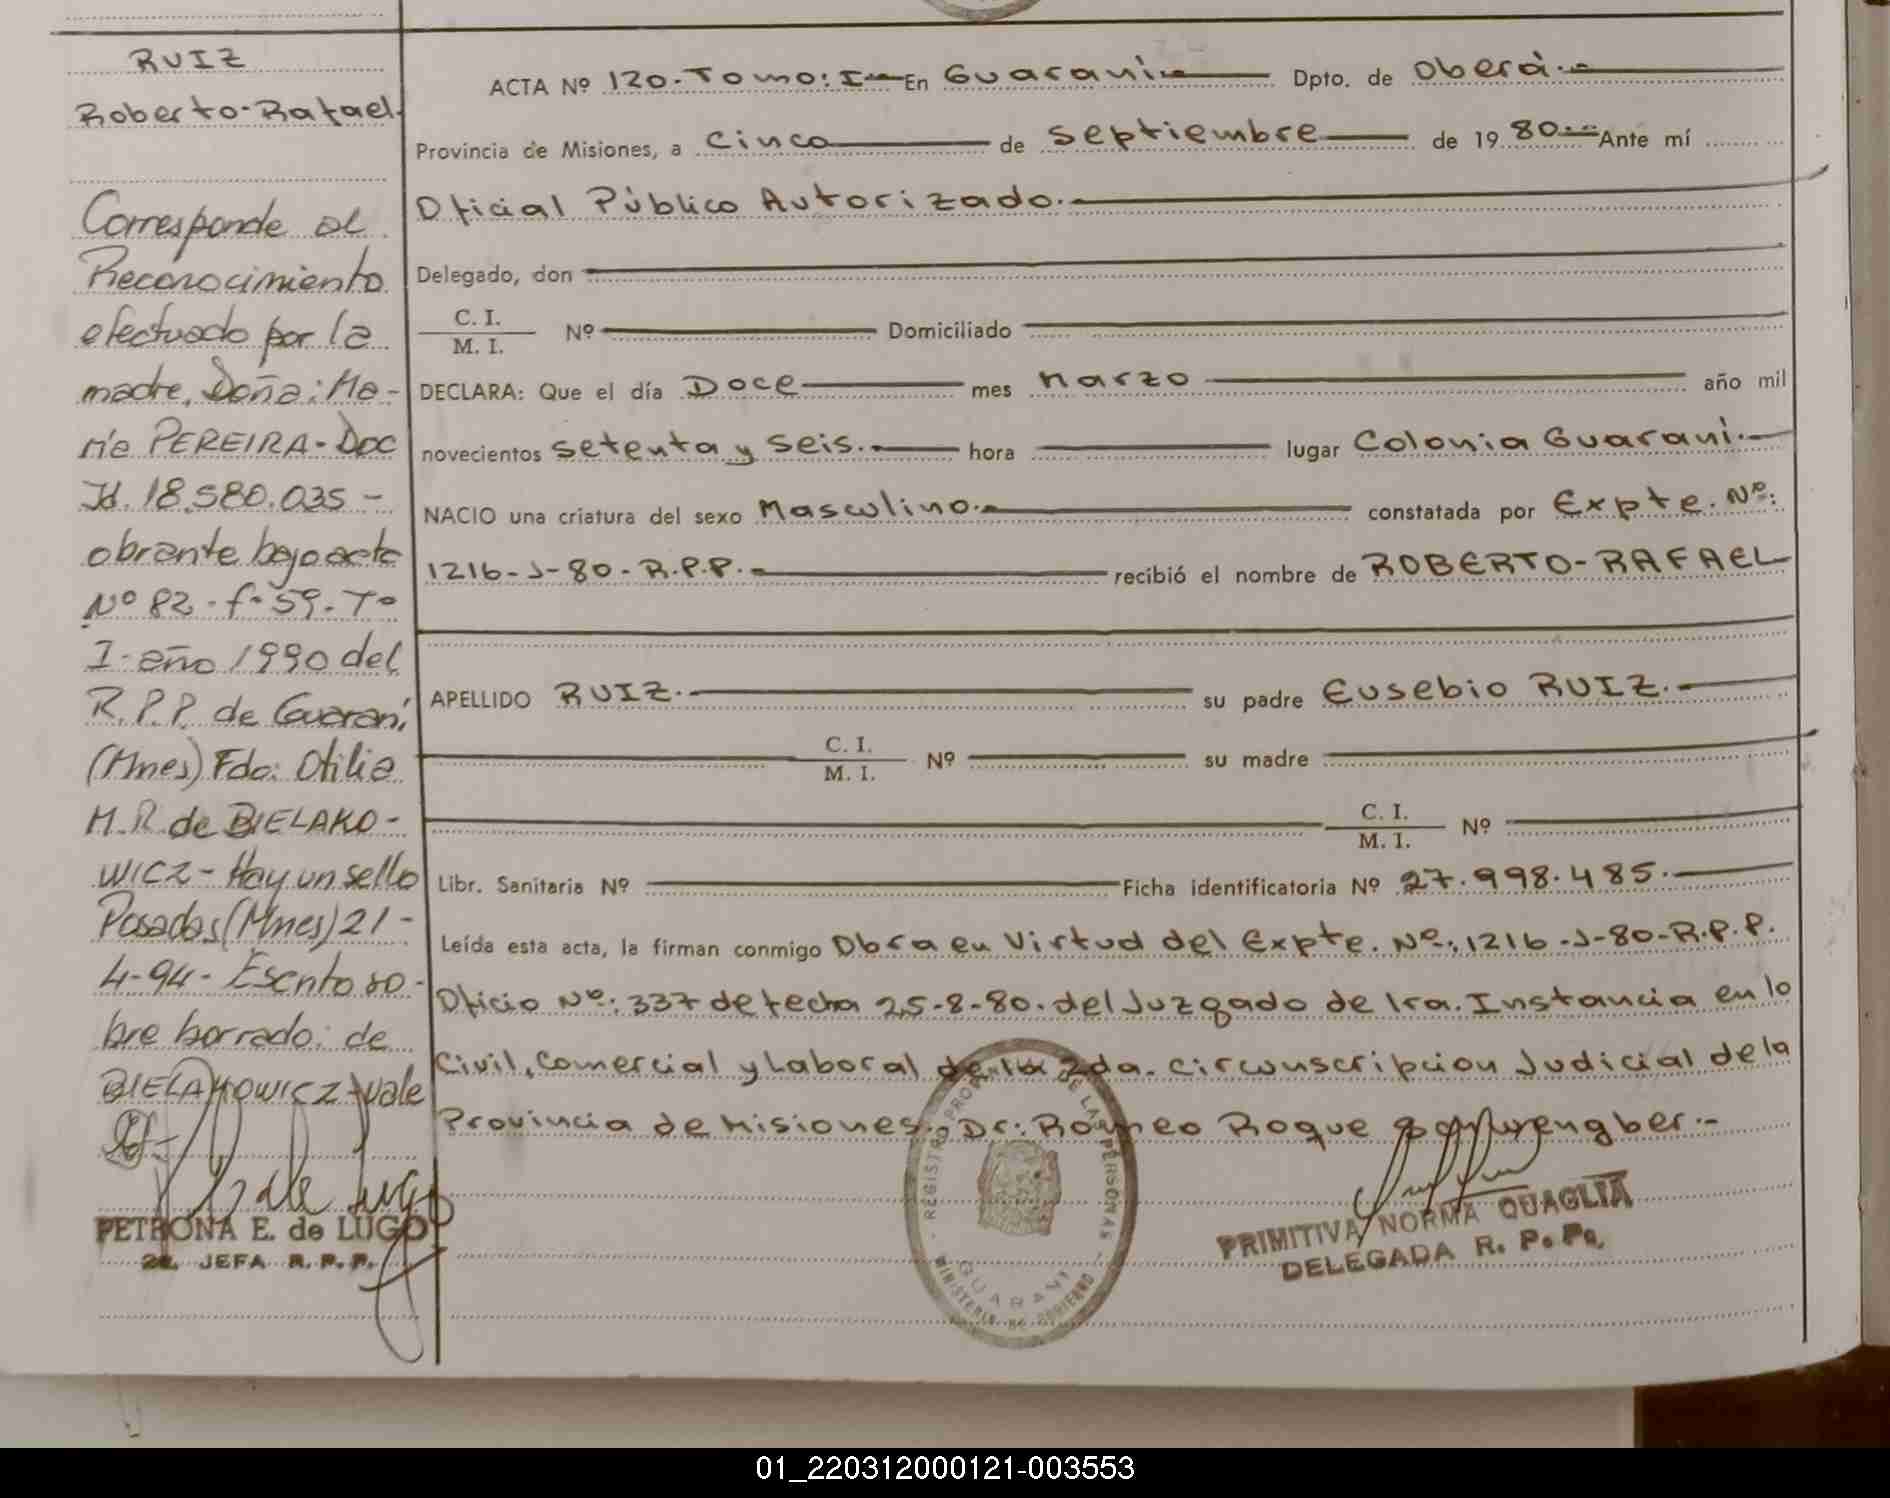 RUIZ
Roberto-Rafael
Corresponde al
Reconocimiento
efectuado por la
madre, Doña: Ma-
ría PEREIRA-Doc
Id. 18.580.035-
obrante bajo acta
Nº 82-fº 59-Tº
I-año 1990 del
R.P.P. de Guaraní
(Mnes) Fdo: Otilia
M.R. de BIELAKO-
WICZ-Hay un sello
Posadas (Mnes) 21-
4-94- Escrito so-
bre borrado: de
BIELAKOWICZ-vale
PETRONA E. de LUGO
2a. JEFA R.P.P.
ACTA Nº 120-Tomo: I En Guaraní Dpto. de Oberá.
Provincia de Misiones, a Cinco de Septiembre de 19 80 Ante mí
Oficial Público Autorizado.
Delegado, don
C. I.
M. I. Nº Domiciliado
DECLARA: Que el día Doce mes Marzo año mil
novecientos setenta y seis. hora lugar Colonia Guaraní.
NACIO una criatura del sexo Masculino. constatada por Expte. Nº:
1216-J-80-R.P.P. recibió el nombre de ROBERTO-RAFAEL
APELLIDO RUIZ. su padre Eusebio RUIZ.
C. I.
M. I. Nº su madre
C. I.
M. I. Nº
Libr. Sanitaria Nº Ficha identificatoria Nº 27.998.485.
Leída esta acta, la firman conmigo Obra en Virtud del Expte. Nº: 1216-J-80-R.P.P.
Oficio Nº: 337 de fecha 25-8-80. del Juzgado de 1ra. Instancia en lo
Civil, Comercial y Laboral de la 2da. Circunscripcion Judicial de la
Provincia de Misiones. Dr: Romeo Roque
REGISTRO PROV. DE LAS PERSONAS
GUARANI
MINISTERIO DE GOBIERNO
PRIMITIVA NORMA QUAGLIA
DELEGADA R. P. P.
01_220312000121-003553